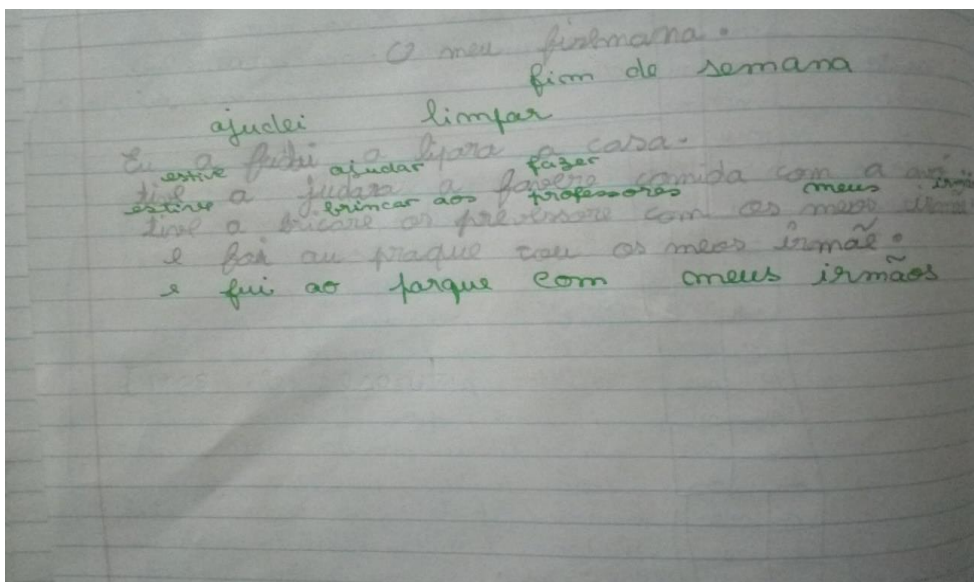 O meu fizemana.
fim de semana
ajudei limpar
Eu a judei a lipara a casa.
estive ajudar fazer
tive a judara a fazere comida com a avó
estive brincar aos professores meus irmã
tive a bricare os prevessore com os meus irmã
e foi au praque cou os meos irmãe.
e fui ao parque com meus irmãos